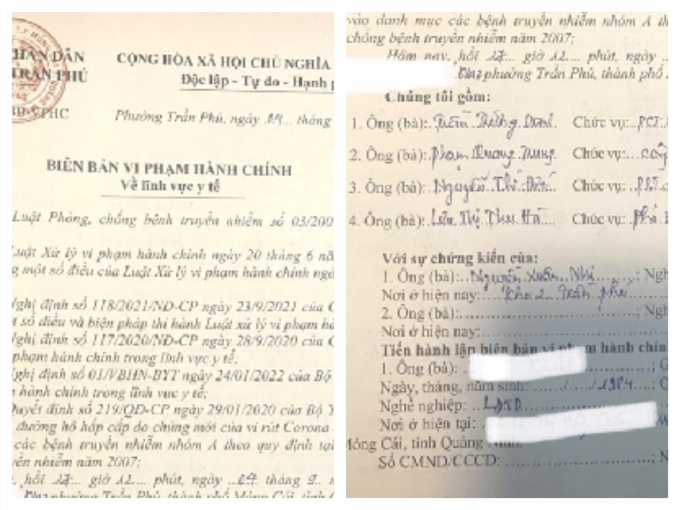 HÂN DÂN
TRẦN PHÚ
CỘNG HÒA XÃ HỘI CHỦ NGHĨA
Độc lập - Tự do - Hạnh p
Phường Trần Phú, ngày 09... tháng
BIÊN BẢN VI PHẠM HÀNH CHÍNH
Về lĩnh vực y tế
Luật Phòng, chống bệnh truyền nhiễm số 03/200
Luật Xử lý vi phạm hành chính ngày 20 tháng 6 nă
g một số điều của Luật Xử lý vi phạm hành chính ngà
Nghị định số 118/2021/NĐ-CP ngày 23/9/2021 của C
t số điều và biện pháp thi hành Luật xử lý vi phạm hà
Nghị định số 117/2020/NĐ-CP ngày 28/9/2020 của C
phạm hành chính trong lĩnh vực y tế;
Nghị định số 01/VBHN-BYT ngày 24/01/2022 của Bộ
m hành chính trong lĩnh vực y tế;
Quyết định số 219/QĐ-CP ngày 29/01/2020 của Bộ Y
đường hô hấp cấp do chủng mới của vi rút Corona
các bệnh truyền nhiễm nhóm A theo quy định tại
yền nhiễm năm 2007;
hồi 17 giờ 12... phút, ngày ..09 tháng 2.. n
phường Trần Phú, thành phố Móng Cái, tỉnh
vào danh mục các bệnh truyền nhiễm nhóm A the
chống bệnh truyền nhiễm năm 2007;
Hôm nay, hồi 17 giờ 12... phút, ngày
phường Trần Phú, thành phố
Chúng tôi gồm:
1. Ông (bà): Chức vụ: PCT
2. Ông (bà): Phạm Quang Trung Chức vụ: Công
3. Ông (bà): Nguyễn Thị Chức vụ:
4. Ông (bà): Thị Thu Hà Chức vụ: Phó
Với sự chứng kiến của:
1. Ông (bà): Nguyễn Xuân Nhị ; Ngh
Nơi ở hiện nay: Khu 2 Trần Phú
2. Ông (bà): ; Ngh
Nơi ở hiện nay:
Tiến hành lập biên bản vi phạm hành chín
1. Ông (bà): ; G
Ngày, tháng, năm sinh: / / 1984 ; G
Nghề nghiệp: LĐTD
Nơi ở hiện tại:
Móng Cái, tỉnh Quảng Ninh
Số CMND/CCCD: ; N